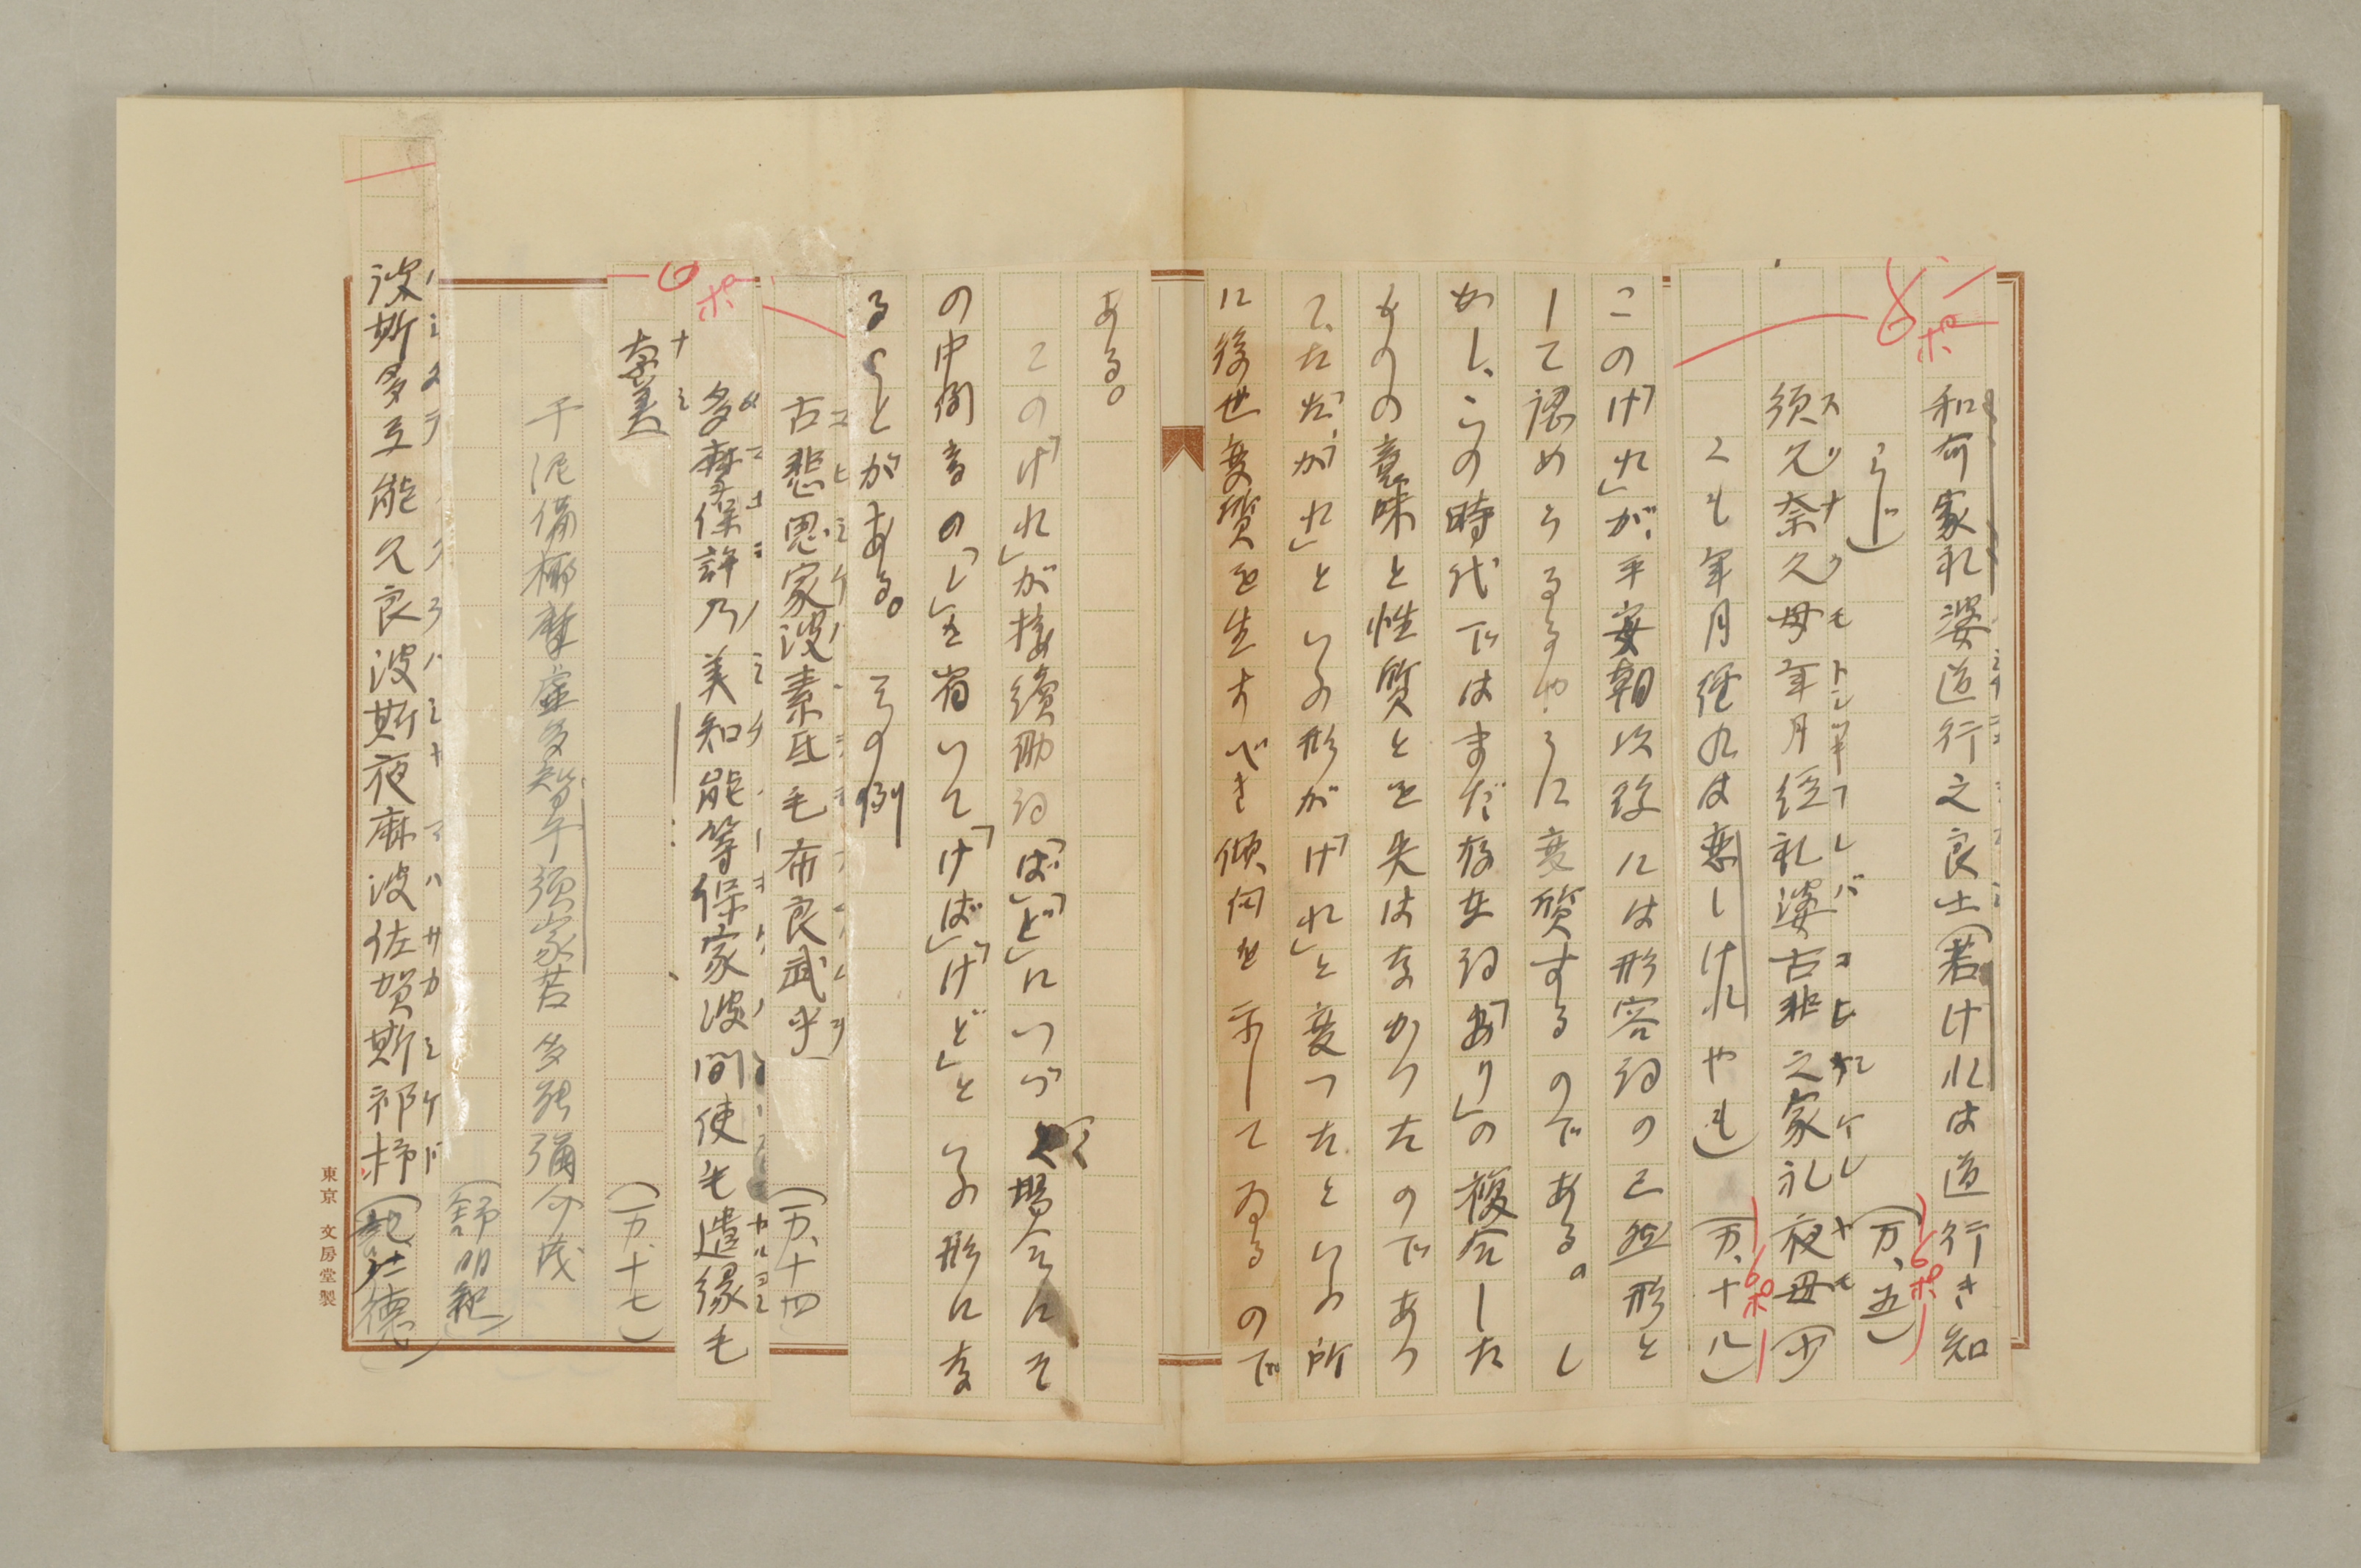 和可家礼婆道行之良士(若ければ道行き知
らじ)
(万、五)
須久奈久母年月経礼婆古非之家礼夜母(少
くも年月経れば恋しけれやも)
(万、十八)
この「けれ」が、平安朝以後には形容詞の已然形と
して認めらるるやうに変質するのである。し
かし、この時代ではまだ存在詞「あり」の複合した
ものの意味と性質とを失はなかつたのであつ
て、ただ「がれ」といふ形が「けれ」と変つたといふ所
に後世変質を生ずべき傾向を示してゐるので
ある。
この「けれ」が接続助詞「ば」「ど」につづく場合にそ
の中間音の「レ」を省いて「けば」「けど」といふ形にな
ることがある。その例
古悲思家波素氐毛布良武乎
(万、十四)
多麻保許乃美知能等保家波間使毛遣縁毛
奈美
(万、十七)
(舒明紀)
波斯多互能久良波斯夜麻波佐賀斯祁杼
6ポ
6ポ
6ポ
6ポ
東京 文房堂製